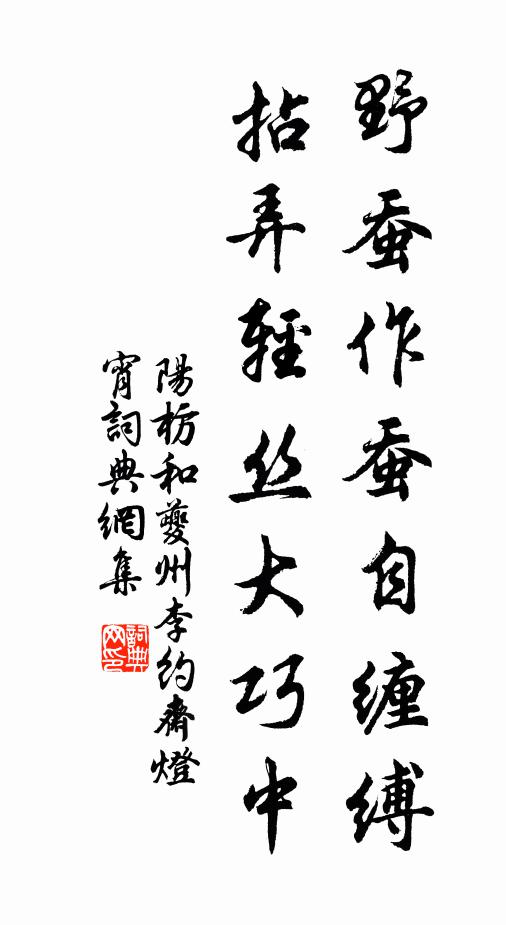 野蚕作蚕自缠缚
拈弄輕丝大巧中
陽枋和夔州李約齋燈
宵詞典網集
詞典网印